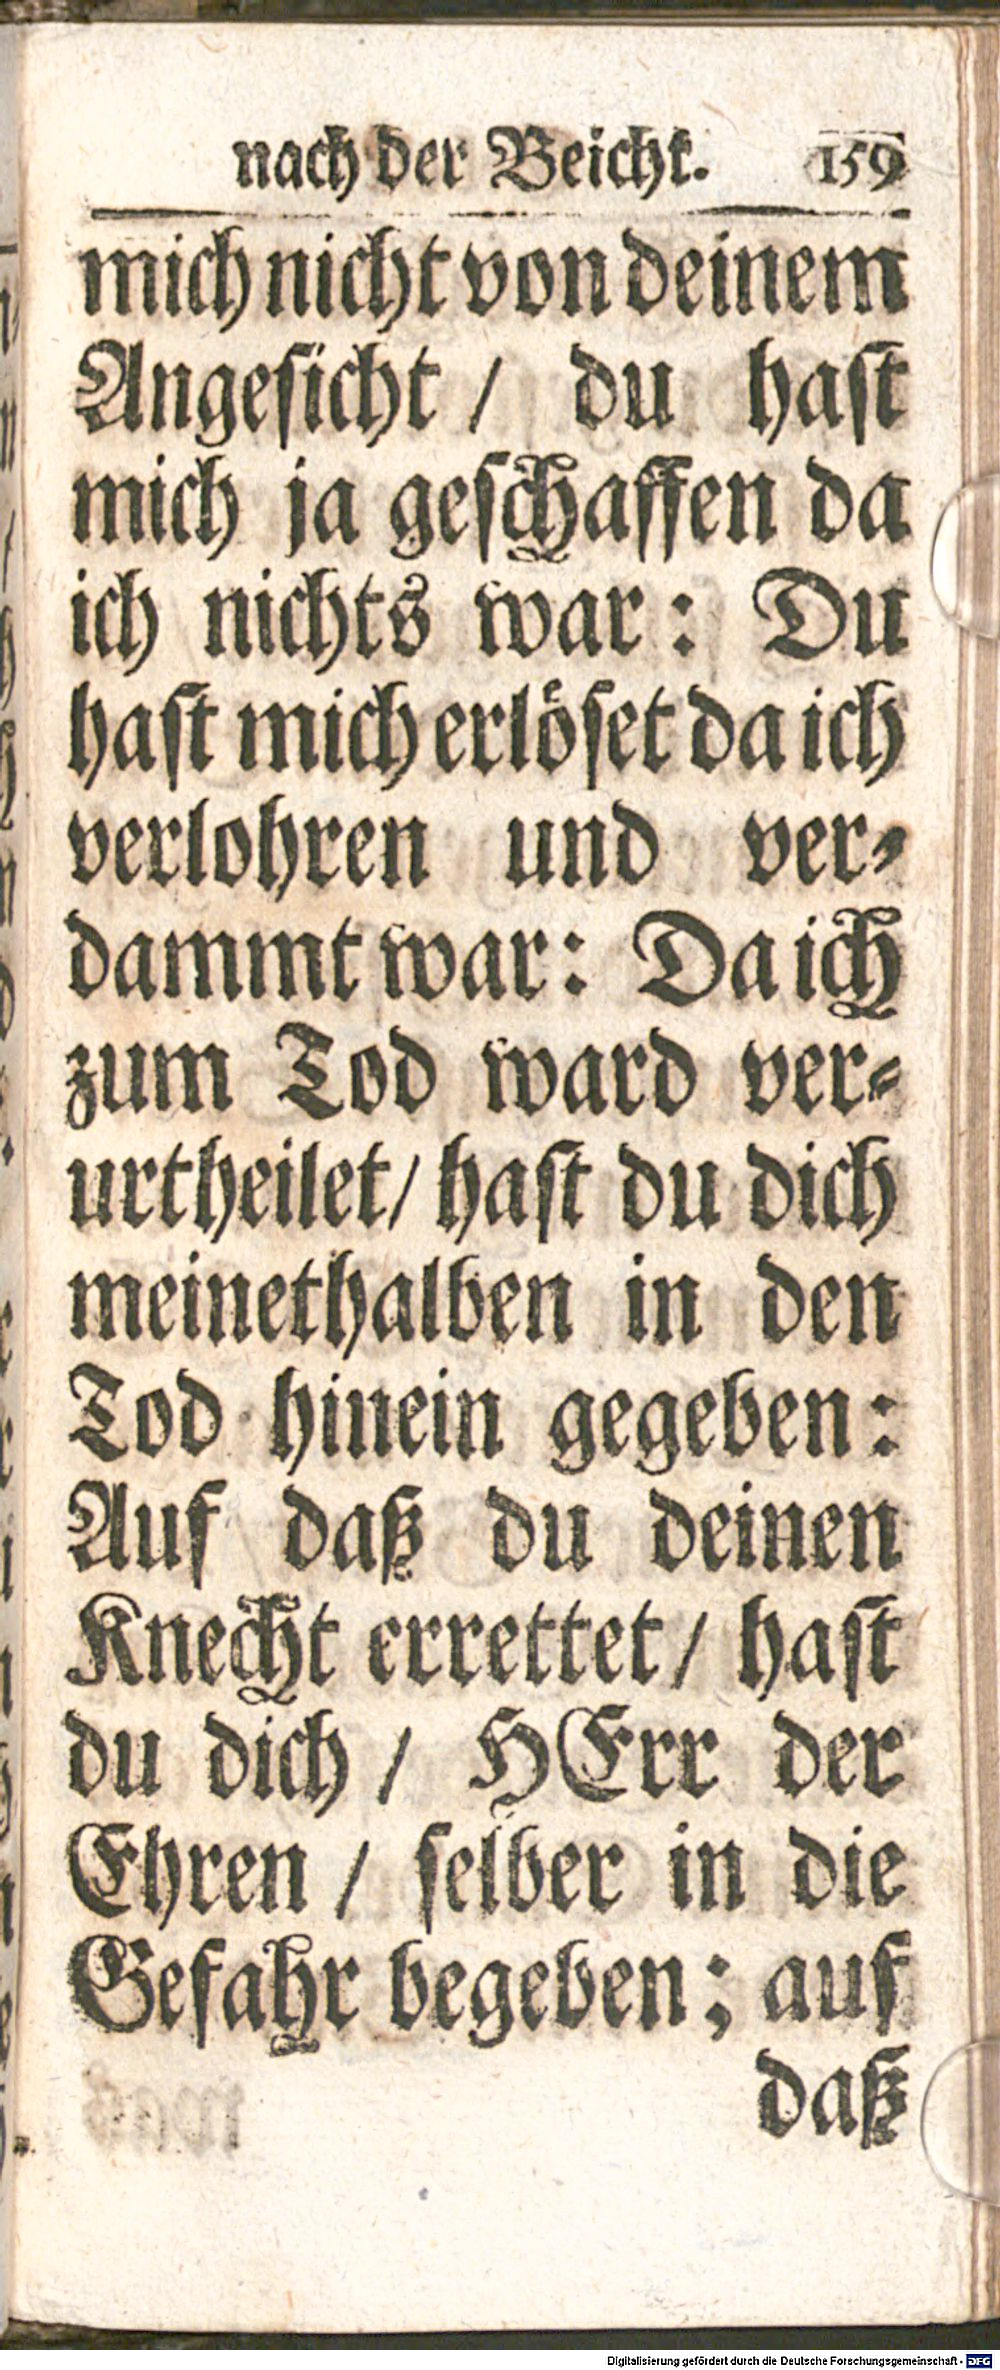 nach der Beicht. 159
mich nicht von deinem
Angesicht / du hast
mich ja geschaffen da
ich nichts war : Du
hast mich erlöset da ich
verlohren und ver⸗
dammt war : Da ich
zum Tod ward ver⸗
urtheilet / hast du dich
meinethalben in den
Tod hinein gegeben :
Auf daß du deinen
Knecht errettet / hast
du dich / HErr der
Ehren / selber in die
Gefahr begeben ; auf
daß
Digitalisierung gefördert durch die Deutsche Forschungsgemeinschaft - DFG